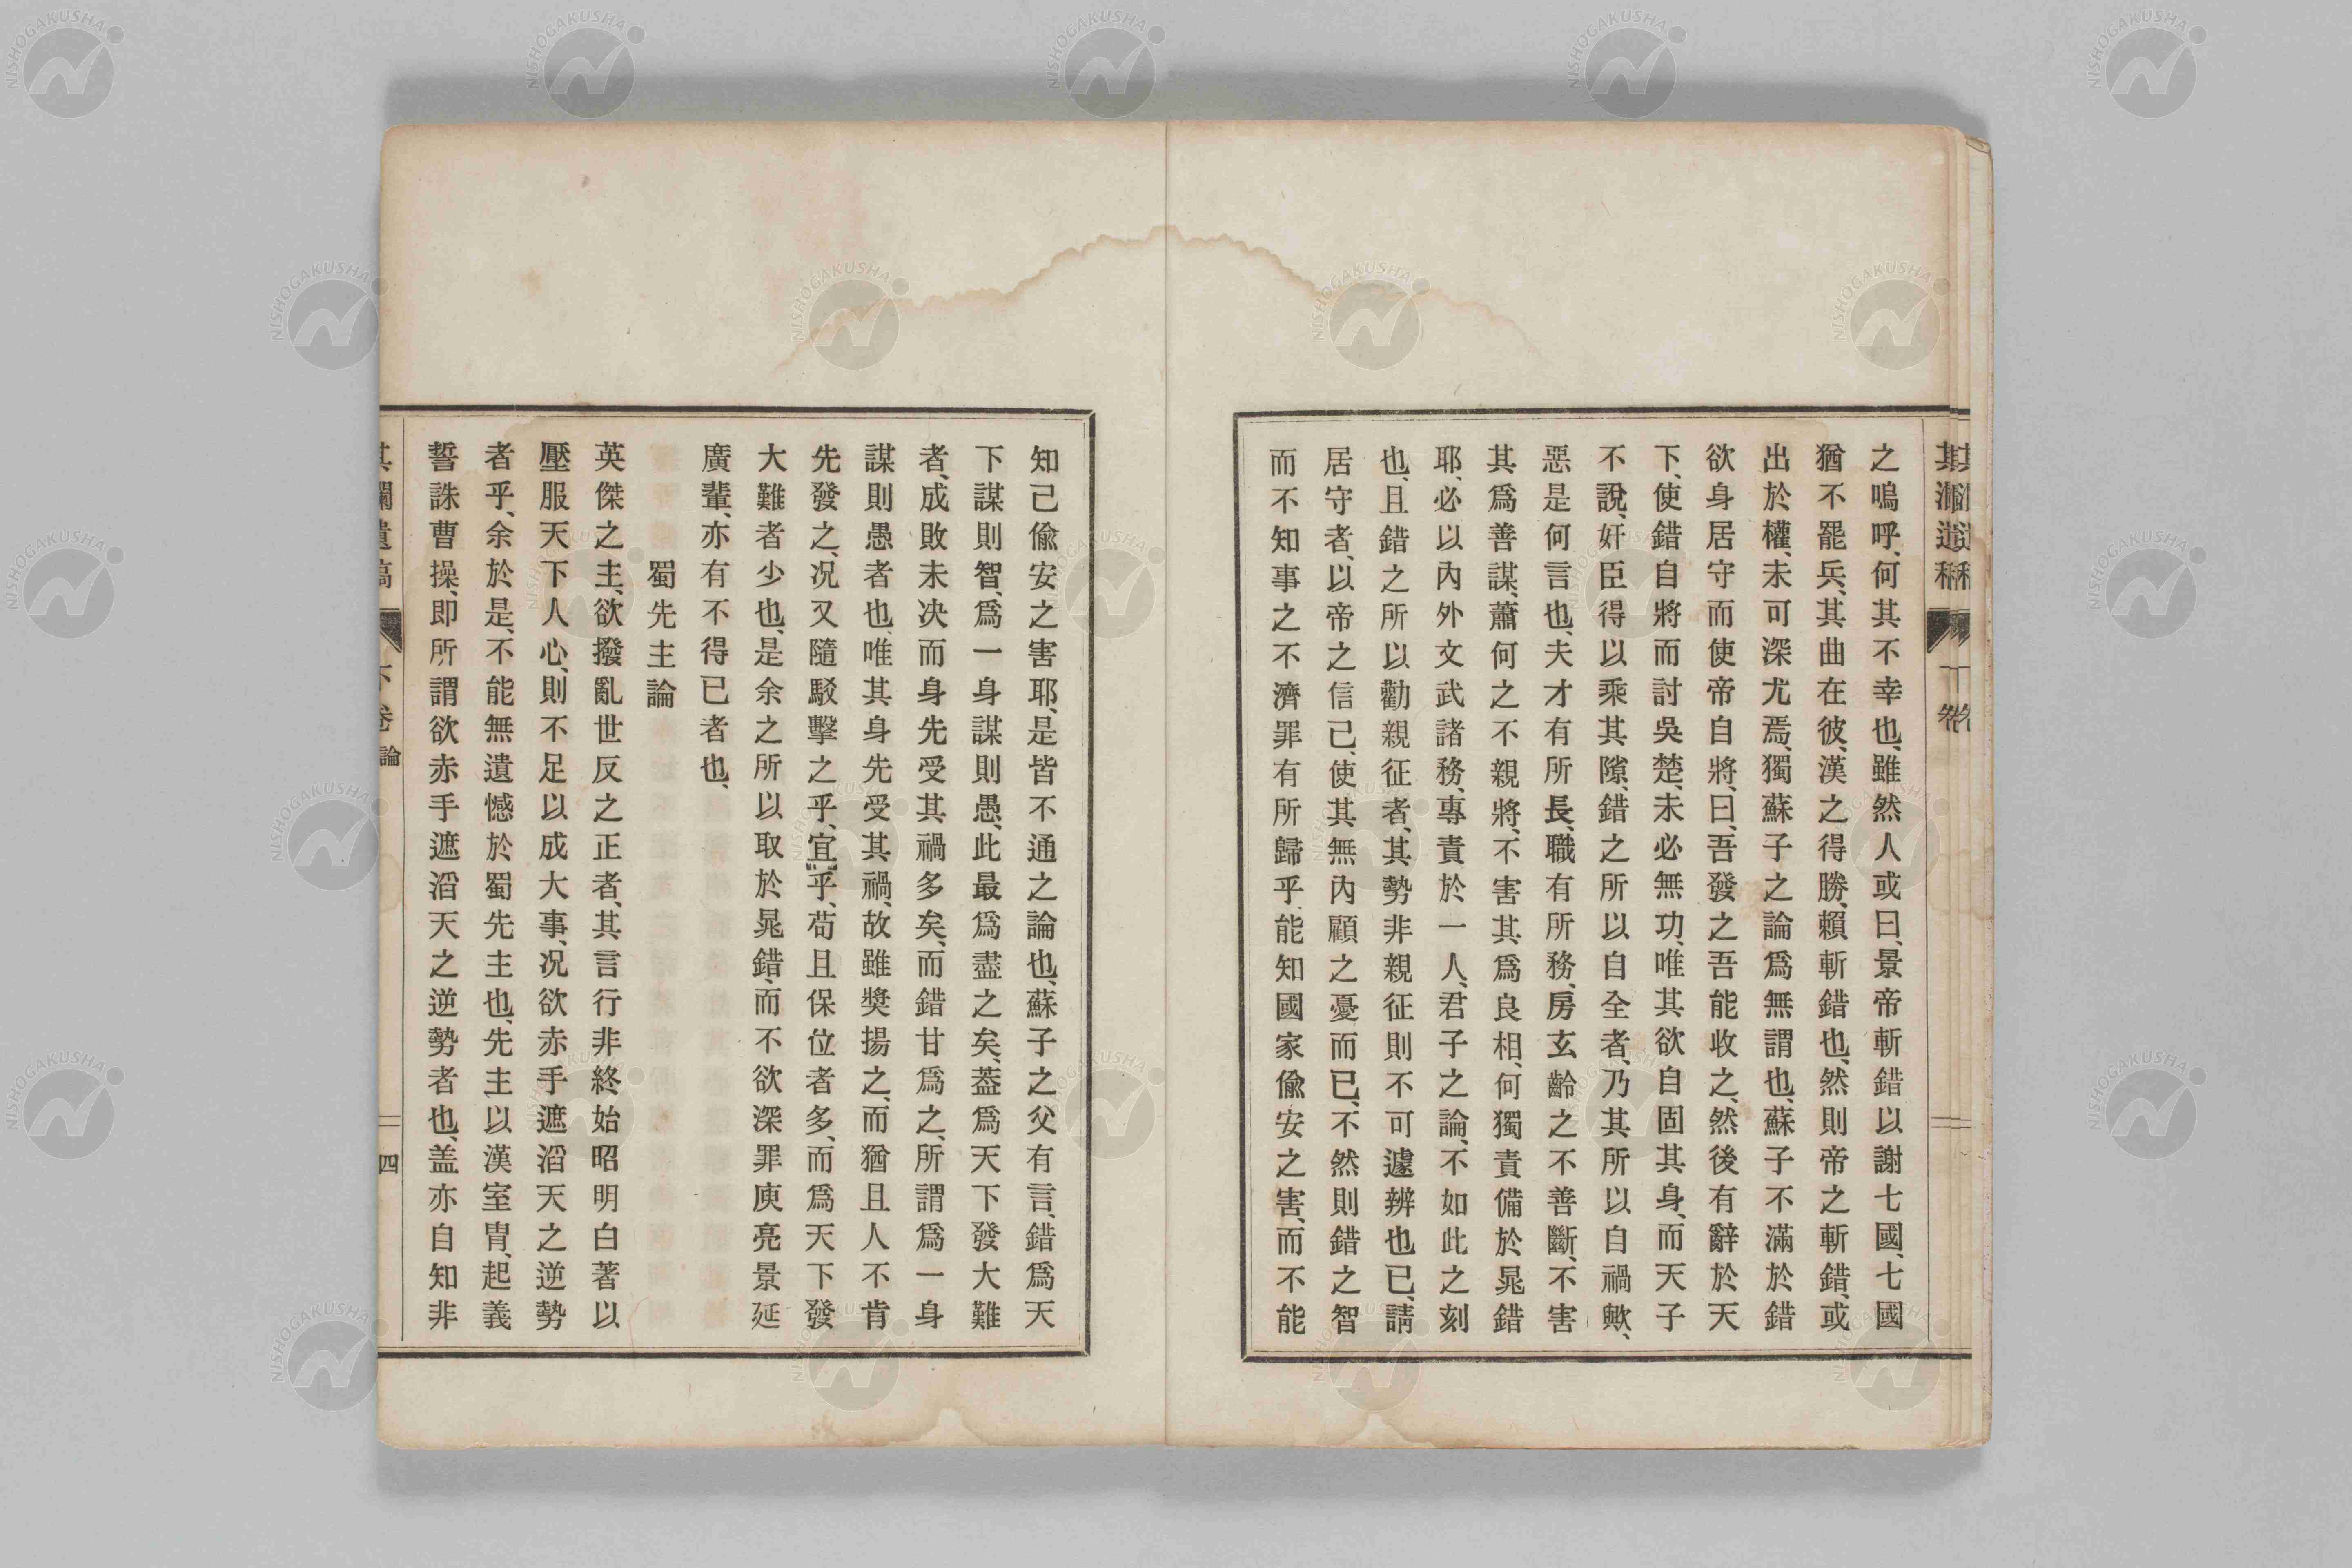 之嗚呼、何其不幸也、雖然人或曰、景帝斬錯以謝七國、七國
猶不罷兵、其曲在彼、漢之得勝、賴斬錯也、然則帝之斬錯、或
出於權、未可深尤焉、獨蘇子之論爲無謂也、蘇子不滿於錯
欲身居守而使帝自將、曰、吾發之吾能收之、然後有辭於天
下、使錯自將而討吳楚、未必無功、唯其欲自固其身、而天子
不說、奸臣得以乘其隙、錯之所以自全者、乃其所以自禍歟、
惡是何言也、夫才有所長、職有所務、房玄齡之不善斷、不害
其爲善謀、蕭何之不親將、不害其爲良相、何獨責備於晁錯
耶、必以內外文武諸務、專責於一人、君子之論、不如此之刻
也、且錯之所以勸親征者、其勢非親征則不可遽辨也已、請
居守者、以帝之信己、使其無內顧之憂而已、不然則錯之智
而不知事之不濟罪有所歸乎、能知國家偸安之害、而不能
知己偸安之害耶、是皆不通之論也、蘇子之父有言、錯爲天
下謀則智、爲一身謀則愚、此最爲盡之矣、蓋爲天下發大難
者、成敗未决而身先受其禍多矣、而錯甘爲之、所謂爲一身
謀則愚者也、唯其身先受其禍、故雖奬揚之、而猶且人不肯
先發之、况又隨駁擊之乎、宜乎、苟且保位者多、而爲天下發
大難者少也、是余之所以取於晁錯、而不欲深罪庾亮景延
廣輩、亦有不得已者也、
蜀先主論
英傑之主、欲撥亂世反之正者、其言行非終始昭明白著以
壓服天下人心、則不足以成大事、况欲赤手遮滔天之逆勢
者乎、余於是、不能無遺憾於蜀先主也、先主以漢室冑、起義
誓誅曹操、即所謂欲赤手遮滔天之逆勢者也、盖亦自知非
遺稿 卷 論 四